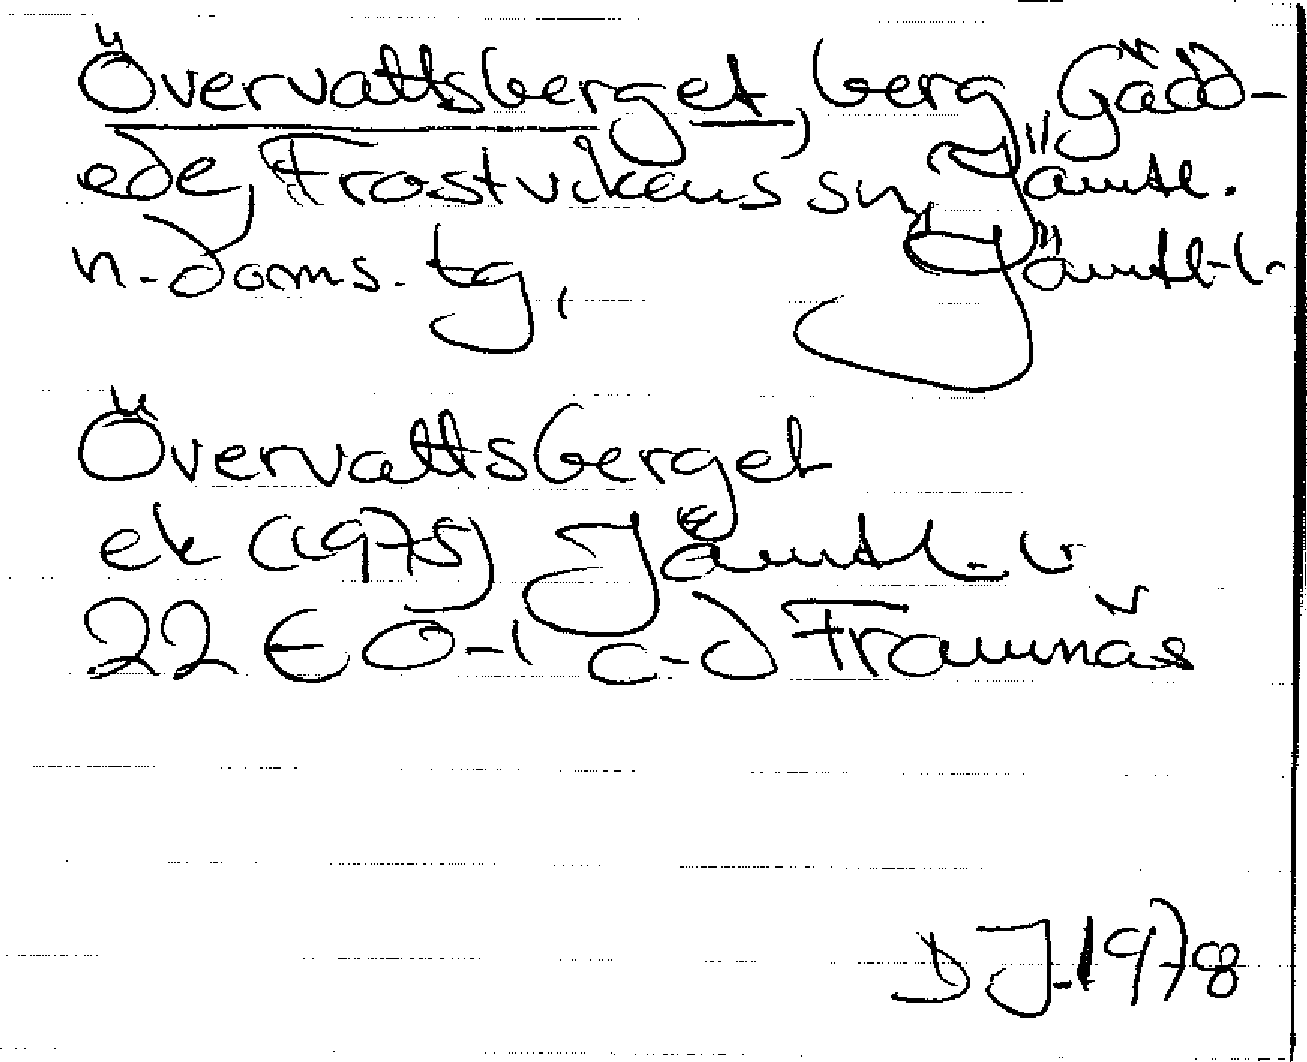 Övervattsberget, berg, Gädd-
ede, Frostvikens sn, Jämtl.
n. doms. tg, Jämtl. l.
Övervattsberget
ek (1975) Jämtl. l.
22 E 0-1 c-d Framnäs
DJ 1978